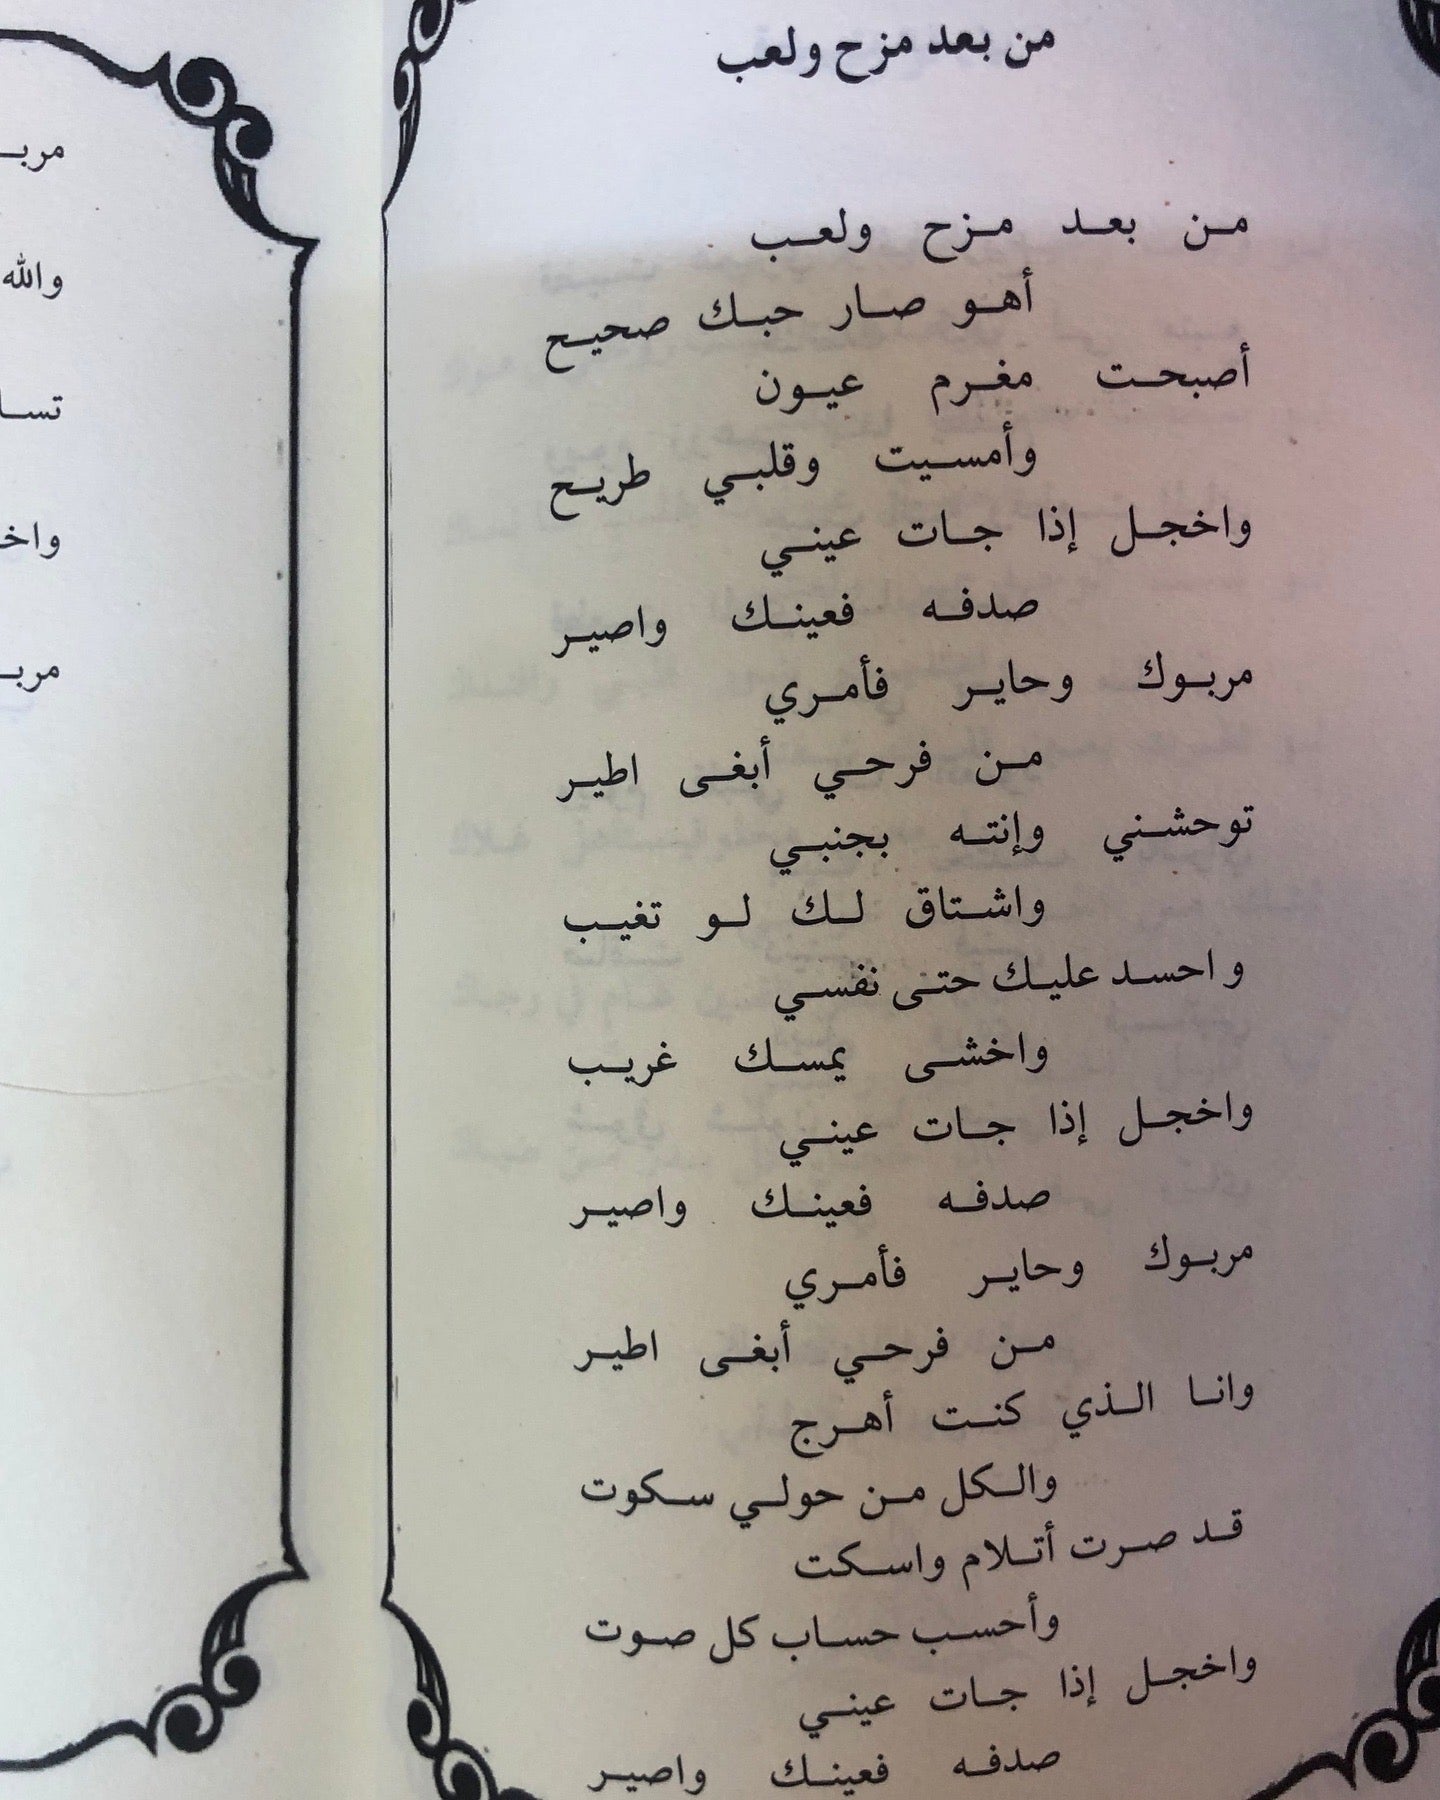 من بعد مزح ولعب
من بعد مزح ولعب
أهو صار حبك صحيح
أصبحت مغرم عيون
وأمسيت وقلبي طريح
واخجل إذا جات عيني
صدفه فعينك واصير
مربوك وحاير فأمري
من فرحي أبغى اطير
توحشني وإنته بجنبي
واشتاق لك لو تغيب
و احسد عليك حتى نفسي
واخشى يمسك غريب
واخجل إذا جات عيني
صدفه فعينك واصير
مربوك وحاير فأمري
من فرحي أبغى اطير
وانا الذي كنت أهرج
والكل من حولي سكوت
قد صرت أتلام واسكت
وأحسب حساب كل صوت
واخجل إذا جات عيني
صدفه فعينك واصير
والله